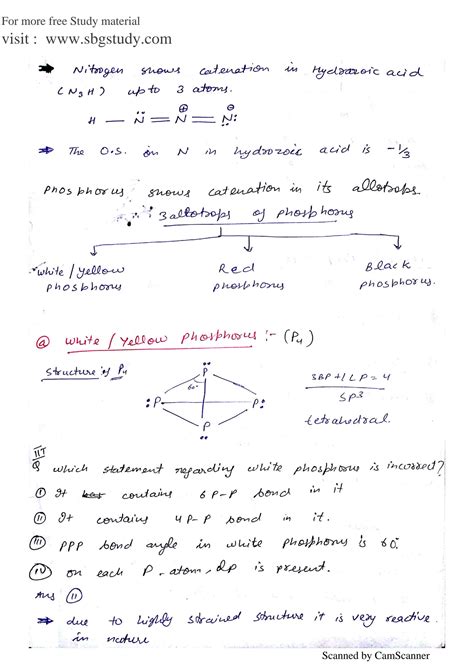 For more free Study material
visit : www.sbgstudy.com
→ Nitrogen shows catenation in Hydrazoic acid
(N3H) upto 3 atoms.
H — N̈ = N⊕ = N̈:⊖
→ The O.S. on N in hydrozoic acid is -1/3
Phosphorus shows catenation in its allotrops.
3 allotrops of phosphorus
White / Yellow Red Black
phosphorus phosphorus phosphorus.
ⓐ White / Yellow Phosphorus :- (P4)
Structure of P4
P
60°
:P P:
P
3BP + 1LP = 4
SP3
tetrahedral.
IIT
Q which statement regarding white phosphorus is incorrect?
(I) It contains 6 P-P bond in it
(II) It contains 4 P-P bond in it.
(III) PPP bond angle in white phosphorus is 60°.
(IV) on each P-atom, lp is present.
Ans (II)
→ due to highly strained structure it is very reactive
in nature
Scanned by CamScanner